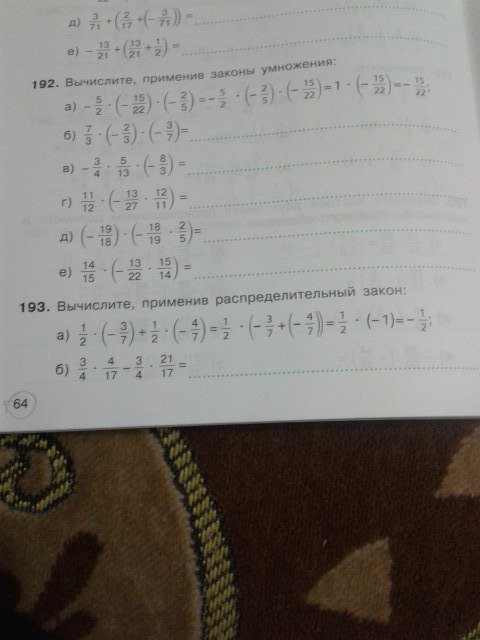 д) 3/71 + (2/17 + (− 3/71)) =
е) − 13/21 + (13/21 + 1/2) =
192. Вычислите, применив законы умножения:
а) − 5/2 · (− 15/22) · (− 2/5) = − 5/2 · (− 2/5) · (− 15/22) = 1 · (− 15/22) = − 15/22;
б) 7/3 · (− 2/3) · (− 3/7) =
в) − 3/4 · 5/13 · (− 8/3) =
г) 11/12 · (− 13/27 · 12/11) =
д) (− 19/18) · (− 18/19 · 2/5) =
е) 14/15 · (− 13/22 · 15/14) =
193. Вычислите, применив распределительный закон:
а) 1/2 · (− 3/7) + 1/2 · (− 4/7) = 1/2 · (− 3/7 + (− 4/7)) = 1/2 · (−1) = − 1/2;
б) 3/4 · 4/17 − 3/4 · 21/17 =
64